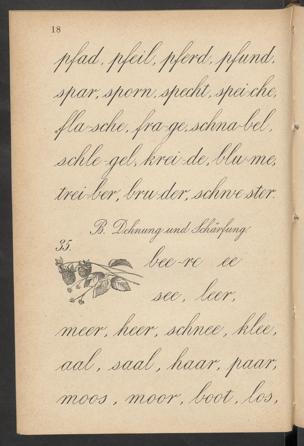 18
pfad, pfeil, pferd, pfund,
spar, sporn, specht, spei-che,
fla-sche, fra-ge, schna-bel,
schle-gel, krei-de, blu-me,
trei-ber, bru-der, schwe-ster.
B. Dehnung und Schärfung.
35.
bee-re ee
see, leer,
meer, heer, schnee, klee,
aal, saal, haar, paar,
moos, moor, boot, los,